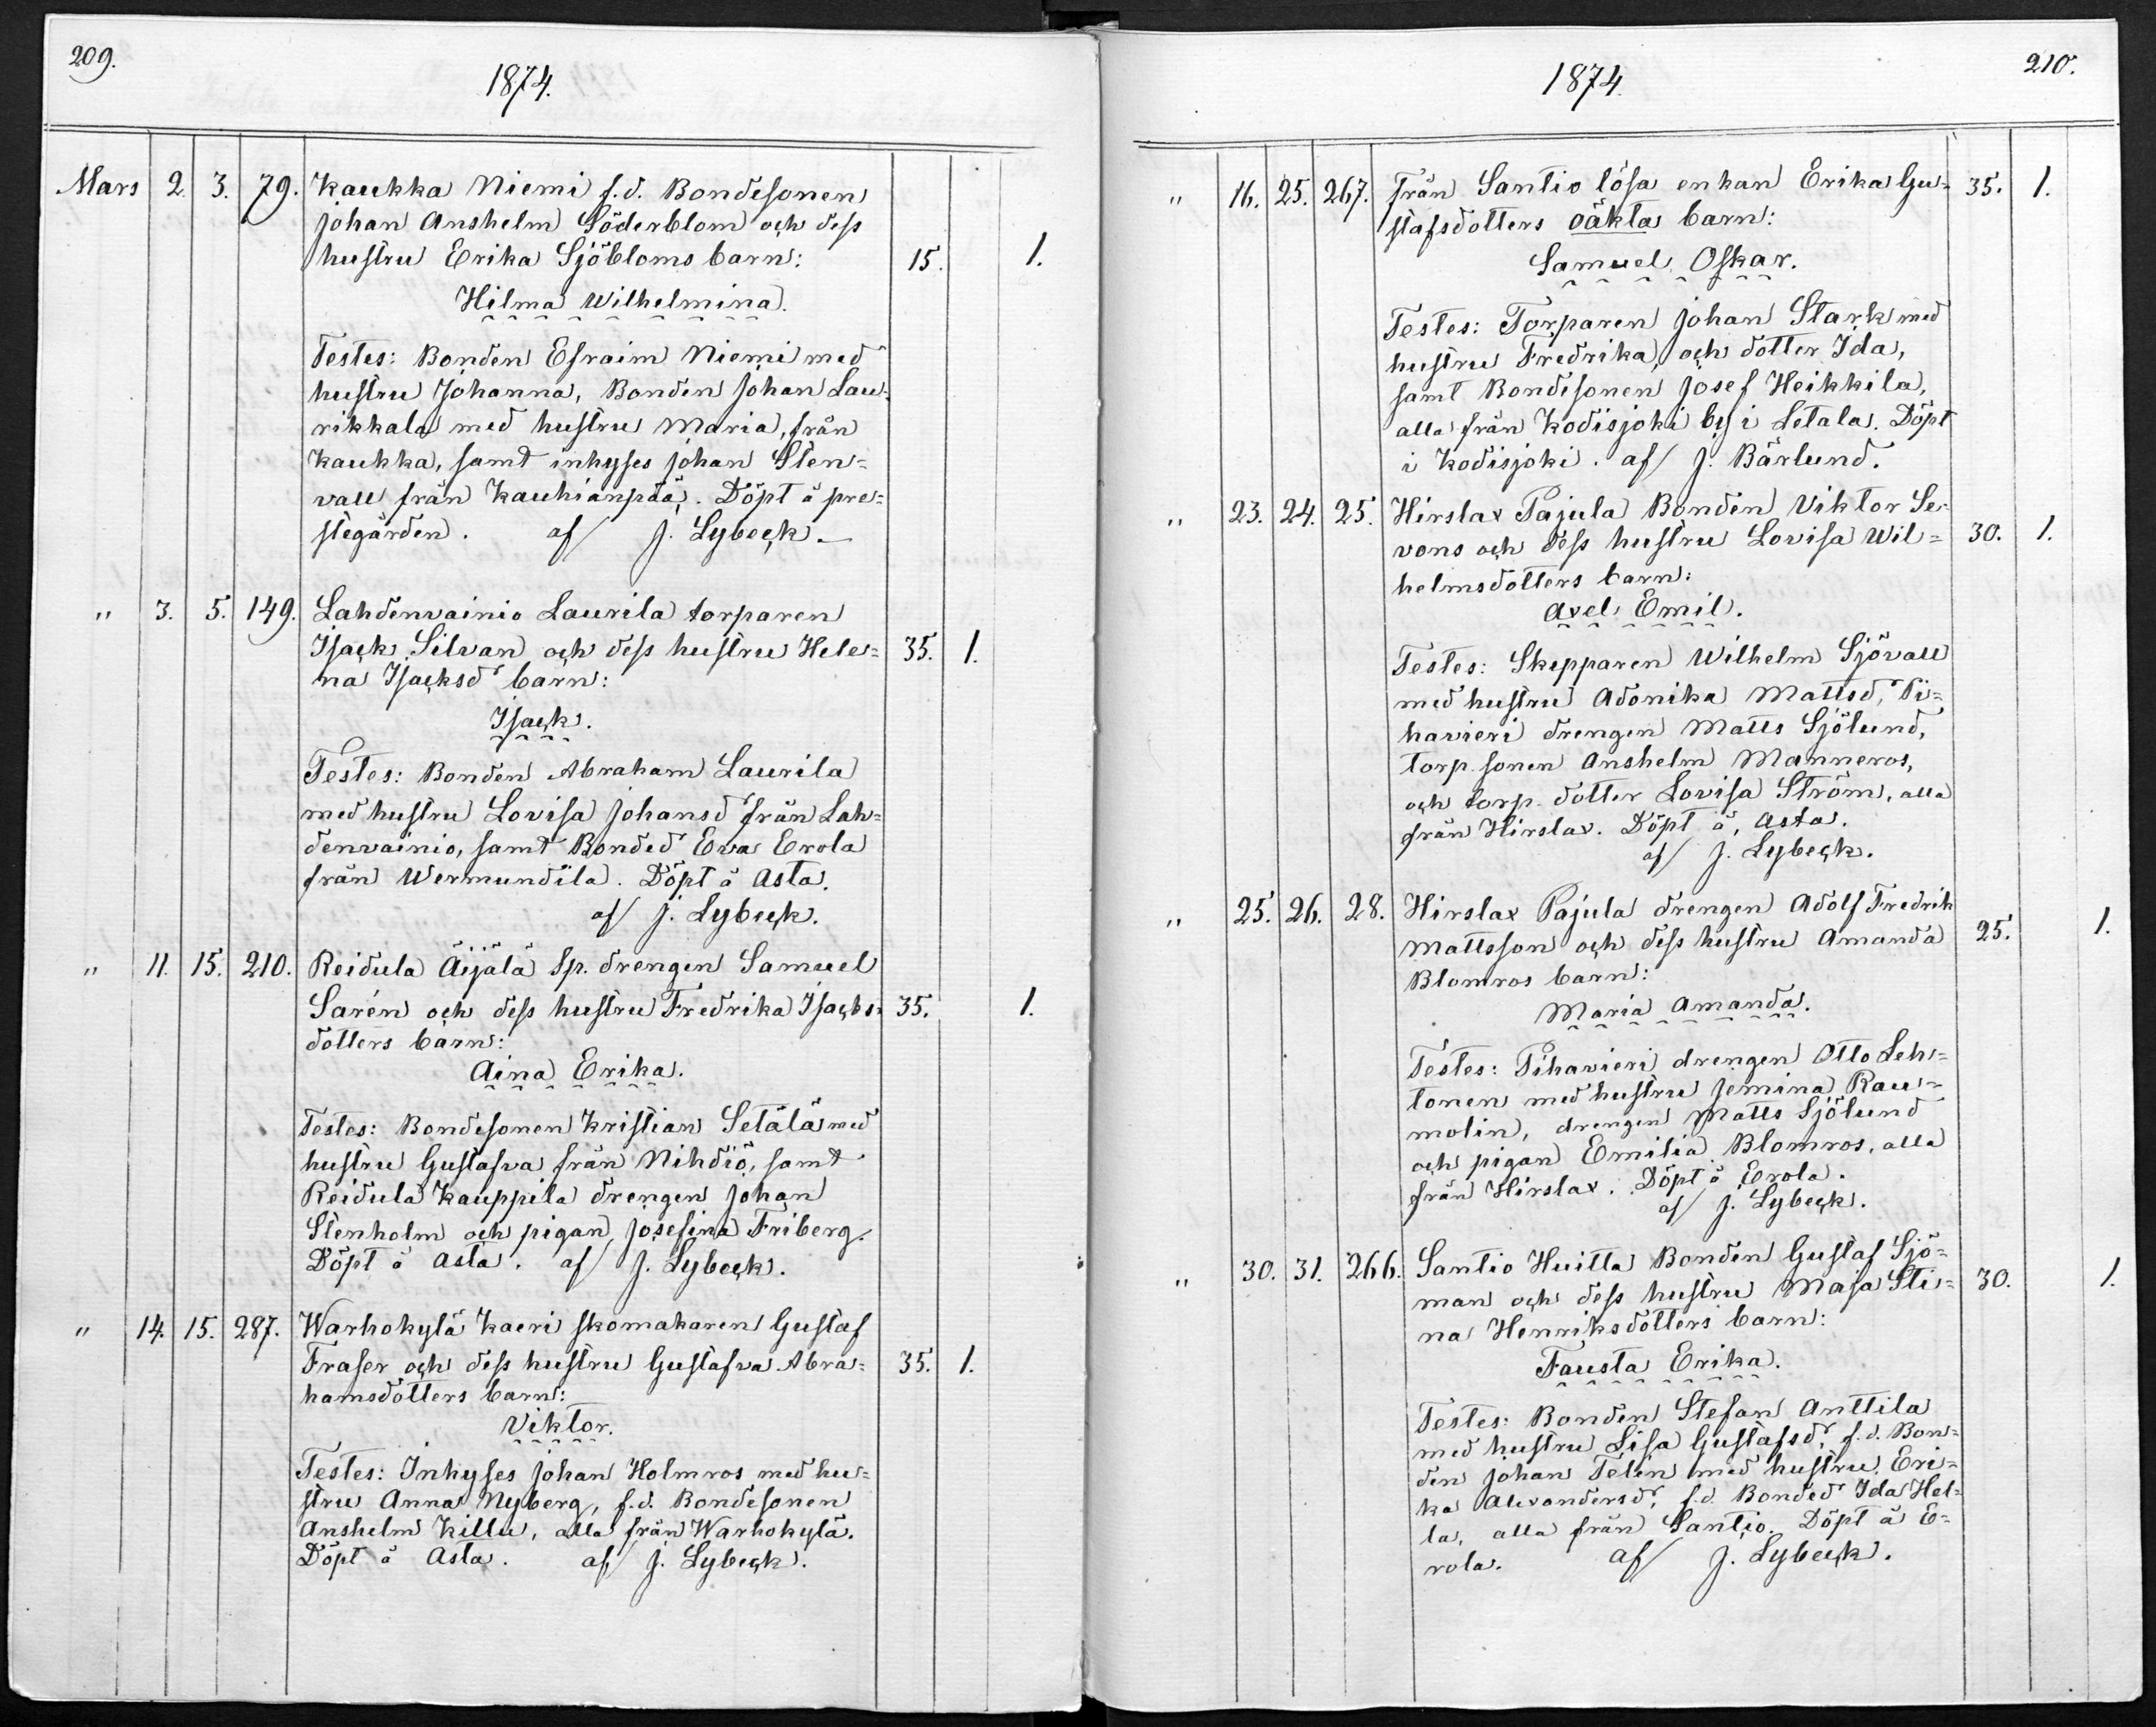 209.
1874.
Mars 2. 3. 79. Kaukka Niemi f.d. Bondesonen
Johan Anshelm Söderblom och dess
hustru Erika Sjöbloms barn: 15. 1.
Hilma Wilhelmina.
Testes: Bonden Efraim Niemi med
hustru Johanna, Bonden Johan Lau-
rikkala med hustru Maria, från
Kaukka, samt inhyses Johan Sten=
vall från Kauhianpää. Döpt å pre=
stegården. af J. Lybeck.
" 3. 5. 149. Lahdenvainio Laurila torparen
Isack Silvan och dess hustru Hele= 35. 1.
na Isacksd:r barn:
Isack.
Testes: Bonden Abraham Laurila
med hustru Lovisa Johansd:r från Lah=
denvainio, samt Bonded:r Eva Erola
från Wermundila. Döpt å Asta.
af J. Lybeck.
" 11. 15. 210. Reidula Äijälä Sp. drengen Samuel
Sarén och dess hustru Fredrika Isacks= 35. 1.
dotters barn:
Aina Erika.
Testes: Bondesonen Kristian Setälä med
hustru Gustafva från Nihdiö, samt
Reidula Kauppila drengen Johan
Stenholm och pigan Josefina Friberg.
Döpt å Asta. af J. Lybeck.
" 14. 15. 287. Warhokylä Kaeri skomakaren Gustaf
Fraser och dess hustru Gustafva Abra= 35. 1.
hamsdotters barn:
Viktor.
Testes: Inhyses Johan Holmros med hu=
stru Anna Nyberg, f.d. Bondesonen
Anshelm Killu, alla från Warhokylä.
Döpt å Asta. af J. Lybeck.
210.
1874.
" 16. 25. 267. Från Santio lösa enkan Erika Gu= 35. 1.
stafsdotters oäkta barn:
Samuel Oskar.
Testes: Torparen Johan Stark med
hustru Fredrika, och dotter Ida,
samt Bondesonen Josef Heikkila,
alla från Kodisjoki by i Letala. Döpt
i Kodisjoki. af J. Bärlund.
" 23. 24. 25. Hirslax Pajula Bonden Viktor Se-
vons och dess hustru Lovisa Wil= 30. 1.
helmsdotters barn:
Axel Emil.
Testes: Skepparen Wilhelm Sjövall
med hustru Adonika Mattsd:r, Pi=
havieri drengen Matts Sjölund,
torp. sonen Anshelm Manneros,
och torp. dotter Lovisa Ström, alla
från Hirslax. Döpt å Asta.
af J. Lybeck.
" 25. 26. 28. Hirslax Pajula drengen Adolf Fredrik
Mattsson och dess hustru Amanda 25. 1.
Blomros barn:
Maria Amanda.
Testes: Pihavieri drengen Otto Leh=
tonen med hustru Jemina Rau=
molin, drengen Matts Sjölund
och pigan Emilia Blomros, alla
från Hirslax. Döpt å Erola.
af J. Lybeck.
" 30. 31. 266. Santio Huitta Bonden Gustaf Sjö=
man och dess hustru Maja Sti= 30. 1.
na Henriksdotters barn:
Fausta Erika.
Testes: Bonden Stefan Anttila
med hustru Lisa Gustafsd:r, f.d. Bon=
den Johan Telin med hustru Eri=
ka Alexandersd:r, f.d. Bonded:r Ida Hel=
la, alla från Santio. Döpt å E=
rola. af J. Lybeck.